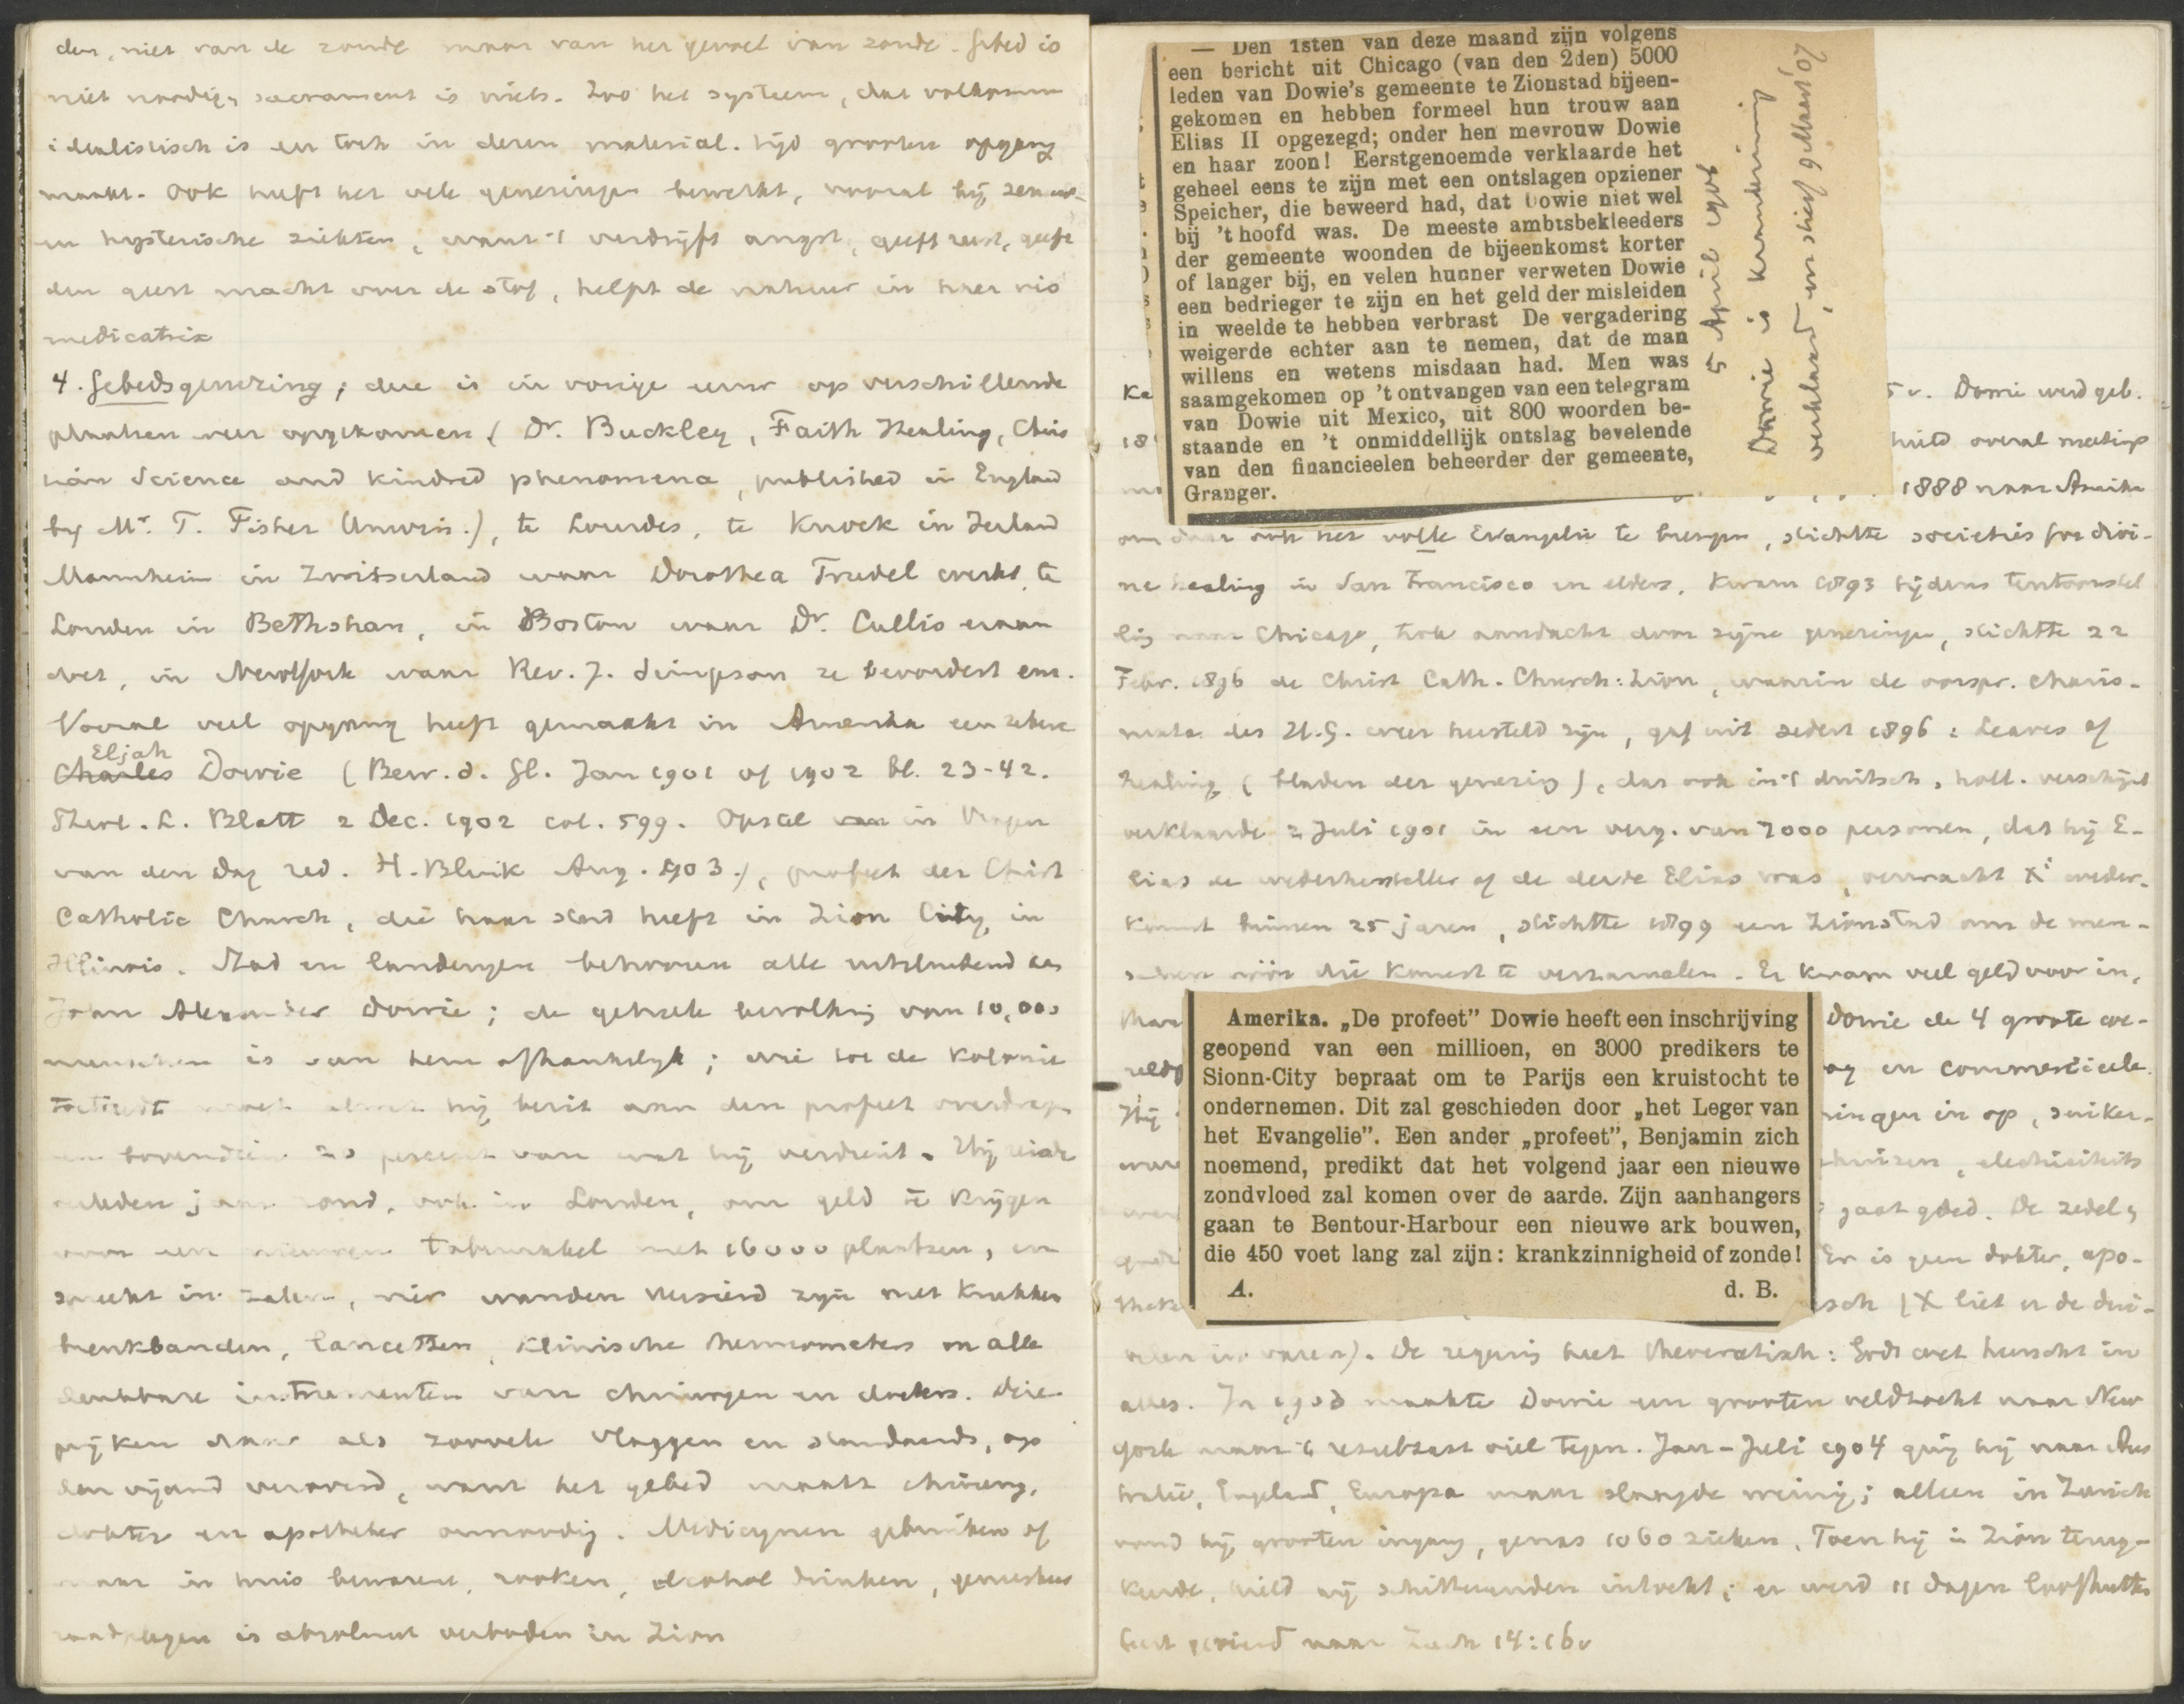 den, niet van de zonde maar van het gevoel van zonde. Gebed is
niet noodig, sacrament is niets. Zoo het systeem, dat volkomen
idealistisch is en toch in dezen material. tijd grooten opgang
maakt. Ook heeft het vele genezingen bewerkt, vooral bij zenuw-
en hysterische ziekten, want 't verdrijft angst, geeft rust, geeft
den geest macht over de stof, helpt de natuur in haer vis
medicatrix
4. Gebedsgenezing; die is in vorige eeuw op verschillende
plaatsen weer opgekomen (Dr. Buckley, Faith Healing, Chris
tian Science and kindred phenomena, published in England
by Mr. T. Fisher Unwin.), te Lourdes, te Knock in Ierland
Mannheim in Zwitserland waar Dorothea Trudel werkt, te
Londen in Bethshan, in Boston waar Dr. Cullis eraan
doet, in NewYork waar Rev. J. Simpson ze bevordert enz.
Vooral veel opgang heeft gemaakt in Amerika een zekere
Eljah
Charles Dowie (Bew. d. Gl. Jan 1901 of 1902 bl. 23-42.
Theol. L. Blatt 2 Dec. 1902 col. 599. Opstel in Vragen
van den Dag red. H. Blink Aug. 1903.), profeet der Christ
Catholic Church, die haar stad heeft in Zion City, in
Illinois. Stad en landerijen behooren alle uitsluitend aan
John Alexander Dowie; de geheele bevolking van 10,000
menschen is van hem afhankelijk; wie tot de kolonie
toetreedt moet alwat hij bezit aan den profeet overdragen
en bovendien 20 percent van wat hij verdient. Hij reisde
verleden jaar rond, ook in Londen, om geld te krijgen
voor een nieuwen tabernakel met 16000 plaatsen, en
spreekt in zalen, wier wanden versierd zijn met krukken
breukbanden, lancetten, klinische thermometers en alle
denkbare instrumenten van chirurgen en doctors. Die
prijken daar als zoovele vlaggen en standaards, op
den vijand veroverd, want het gebed maakt chirurg,
dokter en apotheker onnoodig. Medicijnen gebruiken of
maar in huis bewaren, rooken, alcohol drinken, geneesheer
raadplegen is absoluut verboden in Zion
— Den 1sten van deze maand zijn volgens
een bericht uit Chicago (van den 2den) 5000
leden van Dowie's gemeente te Zionstad bijeen-
gekomen en hebben formeel hun trouw aan
Elias II opgezegd; onder hen mevrouw Dowie
en haar zoon! Eerstgenoemde verklaarde het
geheel eens te zijn met een ontslagen opziener
Speicher, die beweerd had, dat Dowie niet wel
bij 't hoofd was. De meeste ambtsbekleeders
der gemeente woonden de bijeenkomst korter
of langer bij, en velen hunner verweten Dowie
een bedrieger te zijn en het geld der misleiden
in weelde te hebben verbrast De vergadering
weigerde echter aan te nemen, dat de man
willens en wetens misdaan had. Men was
saamgekomen op 't ontvangen van een telegram
van Dowie uit Mexico, uit 800 woorden be-
staande en 't onmiddellijk ontslag bevelende
van den financieelen beheerder der gemeente,
Granger.
5 April 1906
Dowie is krankzinnig
verklaard, en stierf 9 Maart 07
Ka
5 v. Dowie werd geb.
18
hield overal meetings
1888 naar Amerika
om daar ook het volle Evangelie te brengen, stichtte societies for divi-
ne healing in San Francisco en elders, kwam 1893 tijdens tentoonstel
ling naar Chicago, trok aandacht door zijne genezingen, stichtte 22
Febr. 1896 de Christ Cath. Church: Zion, waarin de oorspr. charis-
mata des H.G. weer hersteld zijn, gaf uit sedert 1896: Leaves of
Healing (bladen der genezing), dat ook in 't duitsch, holl. verschijnt
verklaarde 2 Juli 1901 in een verg. van 7000 personen, dat hij E-
lias de wederhersteller of de derde Elias was, verwacht Xi weder-
komst binnen 25 jaren, stichtte 1899 een Zionstad om de men-
schen vóór die komst te verzamelen. Er kwam veel geld voor in,
Amerika. „De profeet” Dowie heeft een inschrijving
geopend van een millioen, en 3000 predikers te
Sionn-City bepraat om te Parijs een kruistocht te
ondernemen. Dit zal geschieden door „het Leger van
het Evangelie”. Een ander „profeet”, Benjamin zich
noemend, predikt dat het volgend jaar een nieuwe
zondvloed zal komen over de aarde. Zijn aanhangers
gaan te Bentour-Harbour een nieuwe ark bouwen,
die 450 voet lang zal zijn: krankzinnigheid of zonde!
A. d. B.
Dowie de 4 groote we-
en commercieele
Hij
ingen in op, suiker-
electriciteits
gaat goed. De zedel,
Er is geen dokter, apo-
(X liet er de dui-
velen in varen). De regering heet theocratisch: Gods wet heerscht in
alles. In 1903 maakte Dowie een grooten veldtocht naar New
York maar 't resultaat viel tegen. Jan-Juli 1904 ging hij naar Aus
tralië, Engeland, Europa maar slaagde weinig; alleen in Zurich
vond hij grooten ingang, genas 1060 zieken. Toen hij in Zion terug-
keerde, hield hij schitterenden intocht; er werd 11 dagen loofhutten
feest gevierd naar Zach 14:16v